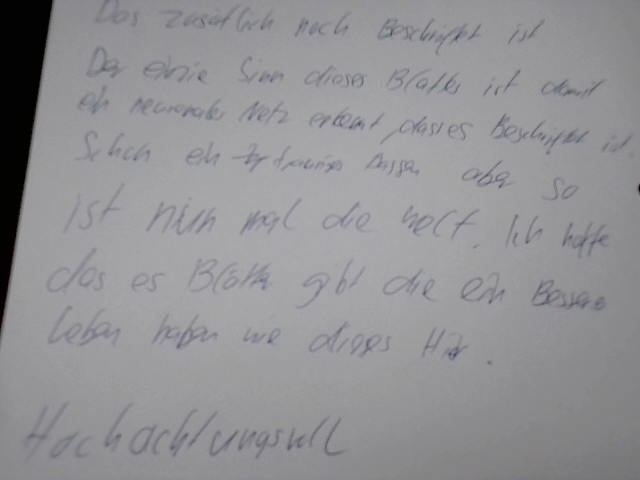 Das zusätlich noch Beschriftet ist
Der einzie Sinn dieses Blattes ist damit
ein neuronales Netz erkennt das es Beschriftet ist.
Schon ein trauriges aber so
ist nun mal die Welt. Ich hoffe
das es Blätter gibt die ein Besseres
Leben haben wie dieses Hier.
Hochachtungsvoll